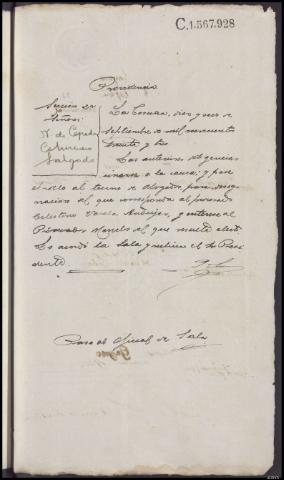 C.1.567.928
Providencia
Sección 2a
Señores:
N. de Cepeda
Salgado
La Coruña, diez y seis de
Septiembre de mil novecientos
treinta y tres
Las anteriores diligencias
únanse a la causa; y pase
el rollo al turno de abogados para desig-
nación del que corresponda al procesado
Celestino Varela
Procurador Morelo del que resulte electo
Lo acordó la Sala y rubrica el Sr Presi
dente
Pase al Oficial de Sala